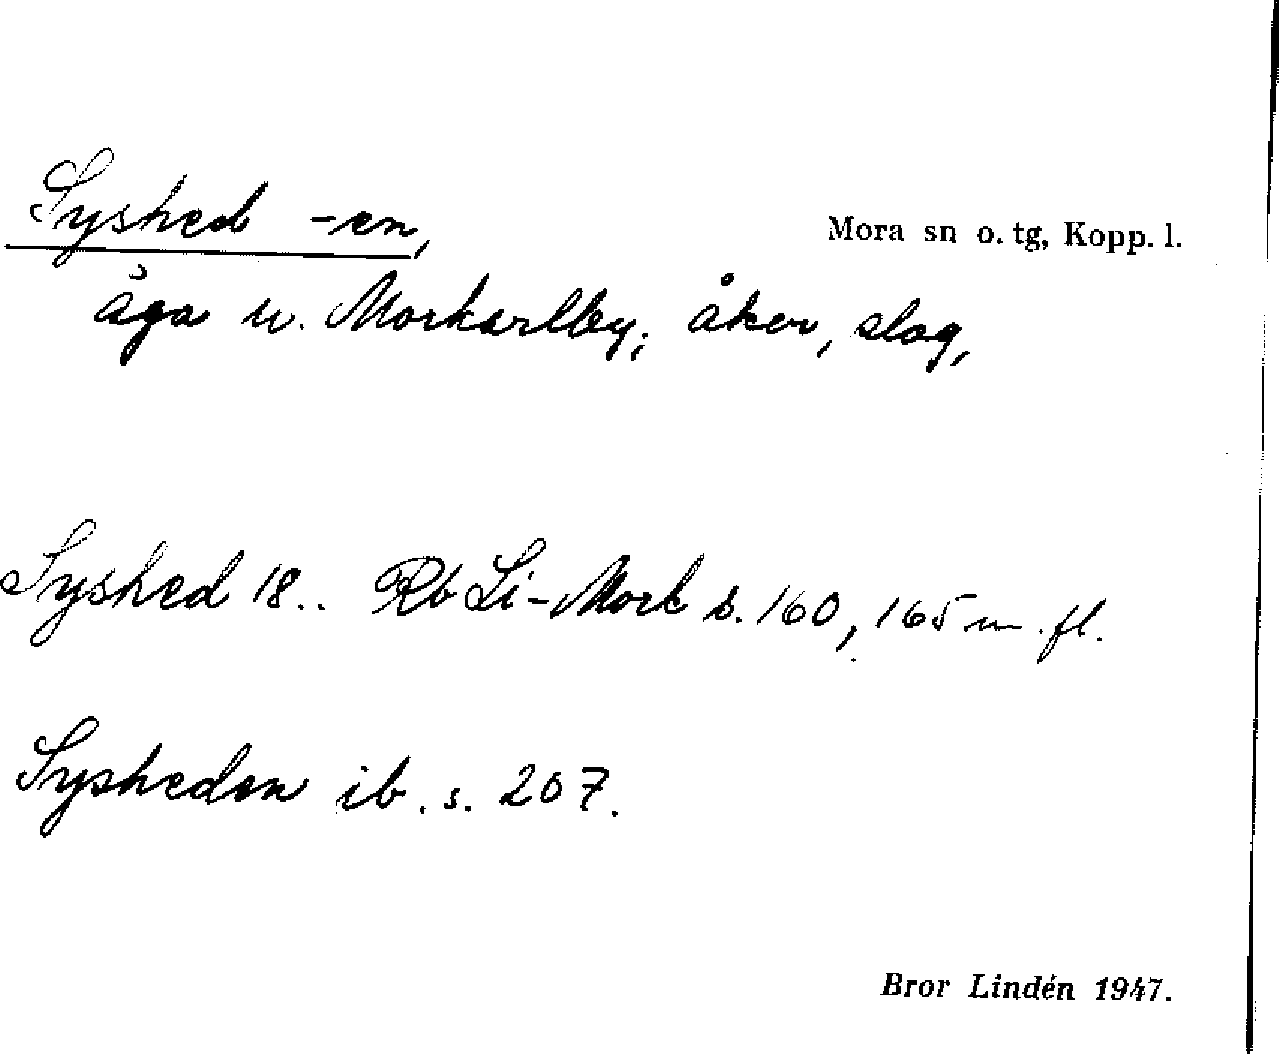 Syshed -en,
Mora sn o. tg, Kopp. l.
äga u. Morkarlby; åker, slog,
Syshed 18.. Rb Li-Mork s. 160, 165 m. fl.
Sysheden ib. s. 207.
Bror Lindén 1947.